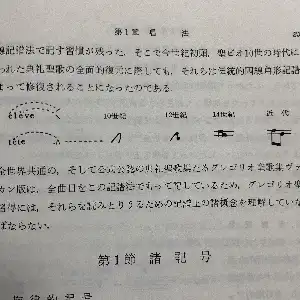 第1章 唱 法
線記譜法で記す習慣が残った。そこで今世紀初頭、聖ピオ10世の時代に
われた典礼聖歌の全面的復元に際しても、それらは伝統的四線角形記譜
よって修復されることになったのである。
élève
élève
10世紀 12世紀 14世紀 近代
全世界共通の、そして公式公認の典礼聖歌集たるグレゴリオ聖歌集ヴァ
カン版は、全曲目をこの記譜法でもって記しているため、グレゴリオ聖
習得には、それらを読みとりうるための記譜上の諸概念を理解していな
ばならない。
第1節 諸記号